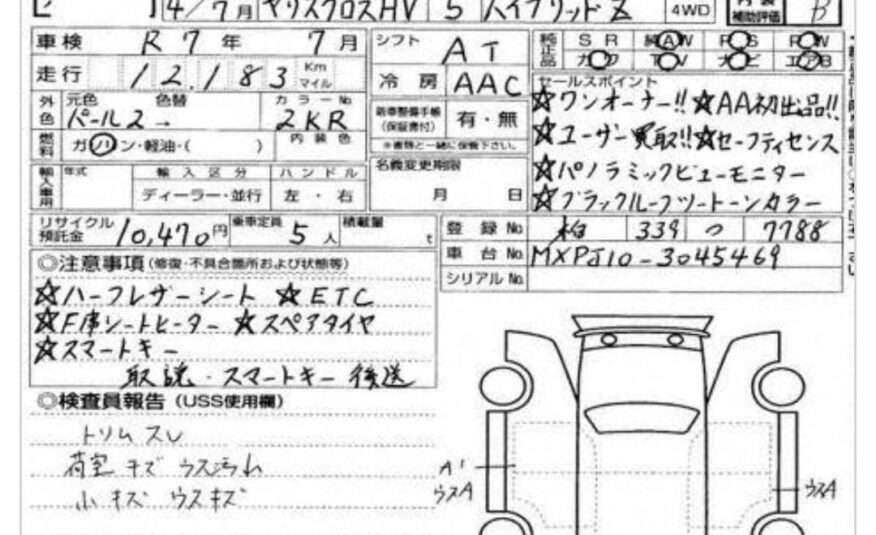 4/7月 ヤリスクロスHV 5 ハイブリッドZ 4WD 補助評価 B
車検 R7年 7月 シフト AT 純正品 SR AW PS PW
走行 12,183 Km マイル 冷房 AAC カワ TV ナビ エアB
外色 元色 色替 カラーNo
パール2→ 2KR
内装色
燃料 ガソリン・軽油・( )
新車整備手帳(保証書付) 有・無
※書類と一緒に保管下さい。
セールスポイント
☆ワンオーナー!! ☆AA初出品!!
☆ユーザー買取!! ☆セーフティセンス
☆パノラミックビューモニター
☆ブラックルーフツートーンカラー
輸入車用 年式 輸入区分 ハンドル
ディーラー・並行 左・右
名義変更期限
月 日
リサイクル預託金 10,470円 乗車定員 5人 積載量 t
登録No. 339 つ 7788
車台No. MXPJ10-3045469
シリアルNo.
◎注意事項(修復・不具合箇所および状態等)
☆ハーフレザーシート ☆ETC
☆F席シートヒーター ☆スペアタイヤ
☆スマートキー
取説・スマートキー後送
◎検査員報告(USS使用欄)
トリムスレ
荷室キズ ウス汚れ
小キズ ウスキズ
A1
ウスA
ウスA